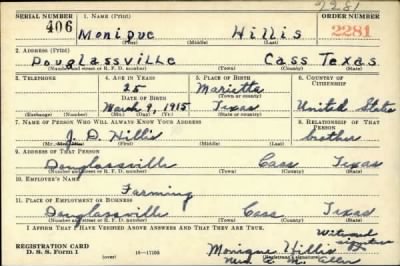 2281
SERIAL NUMBER 1. NAME (Print) ORDER NUMBER
406 Monique Hillis 2281
(First) (Middle) (Last)
2. ADDRESS (Print)
Douglassville Cass Texas
(Number and street or R. F. D. number) (Town) (County) (State)
3. TELEPHONE 4. AGE IN YEARS 5. PLACE OF BIRTH 6. COUNTRY OF CITIZENSHIP
25 Marietta
DATE OF BIRTH (Town or county)
March 9, 1915 Texas United States
(Exchange) (Number) (Mo.) (Day) (Yr.) (State or country)
7. NAME OF PERSON WHO WILL ALWAYS KNOW YOUR ADDRESS 8. RELATIONSHIP OF THAT PERSON
J. D. Hillis brother
(Mr., Mrs., Miss) (First) (Middle) (Last)
9. ADDRESS OF THAT PERSON
Douglassville Cass Texas
(Number and street or R. F. D. number) (Town) (County) (State)
10. EMPLOYER'S NAME
Farming
11. PLACE OF EMPLOYMENT OR BUSINESS
Douglassville Cass Texas
(Number and street or R. F. D. number) (Town) (County) (State)
I AFFIRM THAT I HAVE VERIFIED ABOVE ANSWERS AND THAT THEY ARE TRUE.
Witnessed signature
REGISTRATION CARD Monique Hillis
D. S. S. Form 1 (over) 16—17105 Mrs.